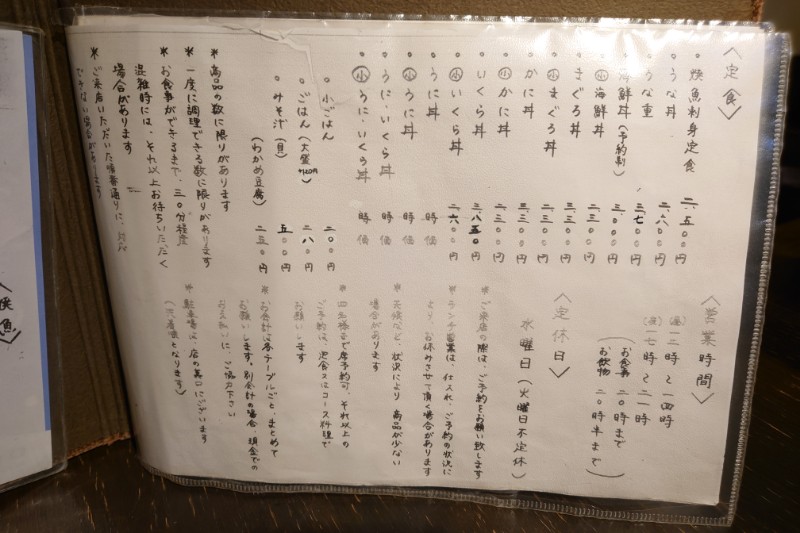 〈定食〉
◦焼魚刺身定食 二、五〇〇円
◦うな丼 二、六〇〇円
◦うな重 三、七〇〇円
◦海鮮丼(予約制) 三、〇〇〇円
◦㊥海鮮丼 二、三〇〇円
◦まぐろ丼 三、三〇〇円
◦㊥まぐろ丼 二、三〇〇円
◦かに丼 三、三〇〇円
◦㊥かに丼 二、三〇〇円
◦いくら丼 三、八五〇円
◦㊥いくら丼 二、六〇〇円
◦うに丼 時価
◦㊥うに丼 時価
◦うに、いくら丼 時価
◦㊥うに、いくら丼 時価
◦小ごはん 二〇〇円
◦ごはん(大盛) 二八〇円
◦みそ汁(貝) 五〇〇円
(わかめ豆腐) 二五〇円
*商品の数に限りがあります
*一度に調理できる数に限りがあります
お食事ができるまで、三〇分程度
*混雑時には、それ以上お待ちいただく
場合があります
*ご来店いただいた順番通りに、
できない場合があります
〈営業時間〉
(昼)一二時〜一四時
(夜)一七時〜二一時
(お食事 二〇時まで
お飲物 二〇時半まで)
〈定休日〉
水曜日(火曜日不定休)
*ご来店の際は、ご予約をお願い致します
*ランチ営業は、仕入れ、ご予約の状況に
より、お休みさせて頂く場合があります
*天候など、状況により、商品が少ない
場合があります
*四名様まで席予約可、それ以上の
ご予約は、定食又はコース料理で
お願いします
*お会計は各テーブルごと、まとめて
お願いします。別会計の場合、現金での
お支払いに、ご協力下さい
*駐車場は、店の裏口にございます
焼魚〉